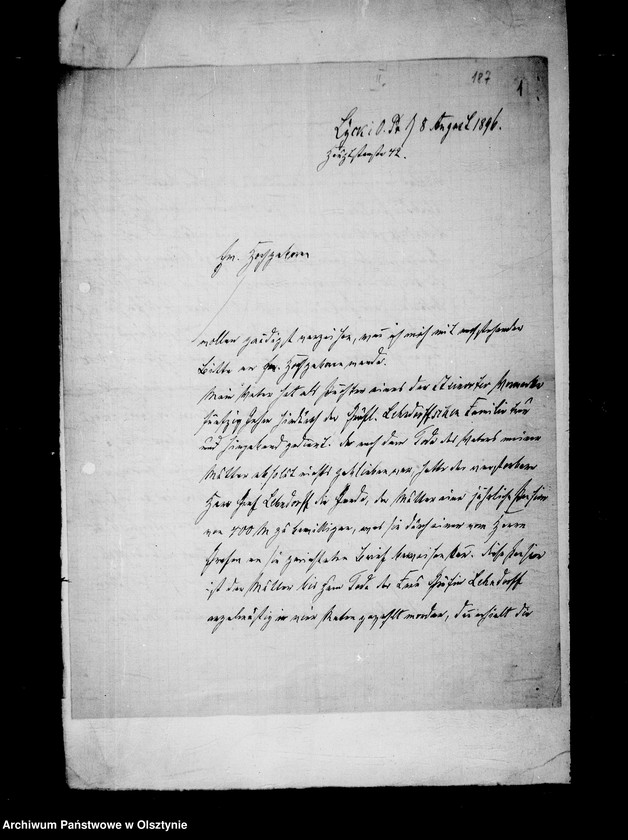 187
1
Lyck i. O. Pr. d 8 August 1896.
Hauptstraße 42.
Ew. Hochgeboren
wollen gnädigst verzeihen, wenn ich mich mit nachstehender
Bitte an Ew. Hochgeboren wende.
Mein Vater hat als Pächter eines der Steinorter Vorwerke
fünfzig Jahre hindurch der Gräfl. Lehndorffschen Familie treu
und hingebend gedient. Da nach dem Tode des Vaters meiner
Mutter absolut nichts geblieben war, hatte der verstorbene
Herr Graf Lehndorff die Gnade, der Mutter eine jährliche Pension
von 400 M zu bewilligen, was sie durch einen vom Herrn
Grafen an sie gerichteten Brief beweisen kann. Diese Pension
ist der Mutter bis zum Tode der Frau Gräfin Lehndorff
regelmäßig in vier Raten gezahlt worden, dann erhielt die
Archiwum Państwowe w Olsztynie